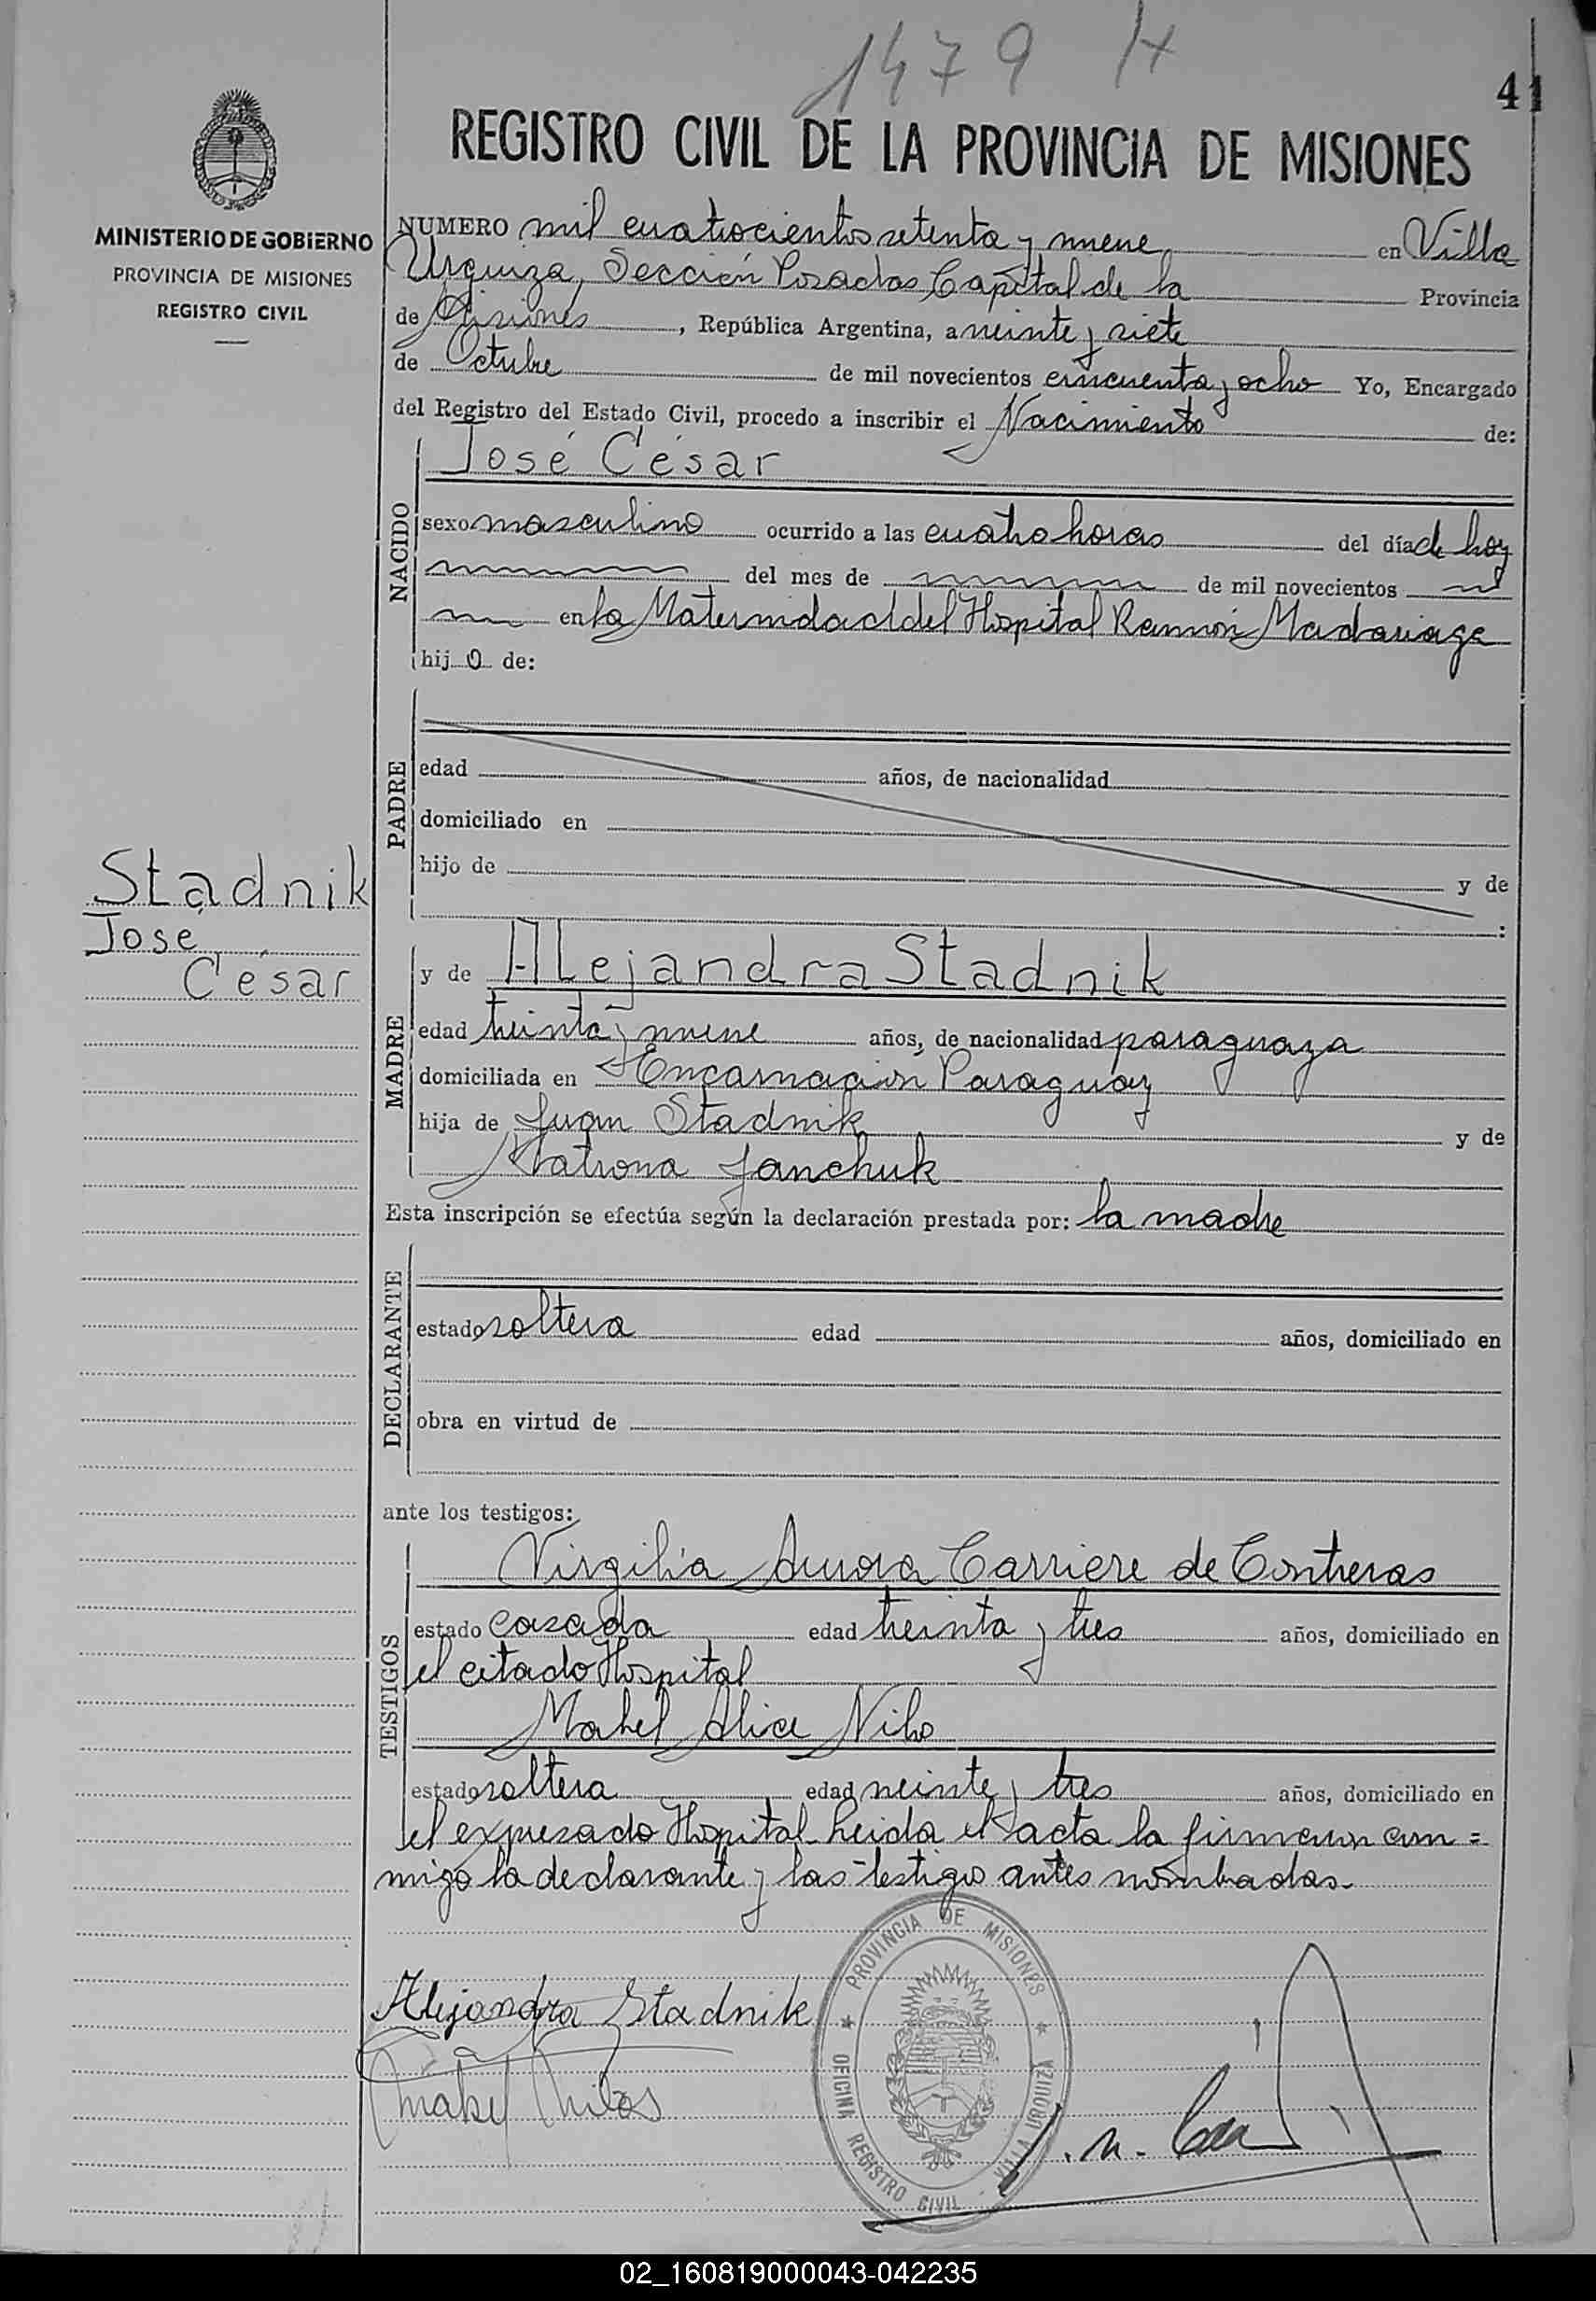 1479
41
REGISTRO CIVIL DE LA PROVINCIA DE MISIONES
MINISTERIO DE GOBIERNO
PROVINCIA DE MISIONES
REGISTRO CIVIL
NUMERO mil cuatrocientos setenta y nueve en Villa
Urquiza, Sección Posadas Capital de la Provincia
de Misiones, República Argentina, a veinte y siete
de Octubre de mil novecientos cincuenta y ocho Yo, Encargado
del Registro del Estado Civil, procedo a inscribir el Nacimiento de:
José César
NACIDO
sexo masculino ocurrido a las cuatro horas del día de hoy
del mes de de mil novecientos
en la Maternidad del Hospital Ramón Madariaga
hijo de:
PADRE
edad años, de nacionalidad
domiciliado en
hijo de y de
:
Stadnik
José
César
MADRE
y de Alejandra Stadnik
edad treinta y nueve años, de nacionalidad paraguaya
domiciliada en Encarnación Paraguay
hija de Juan Stadnik y de
Matrona Janchuk
Esta inscripción se efectúa según la declaración prestada por: la madre
DECLARANTE
estado soltera edad años, domiciliado en
obra en virtud de
ante los testigos:
TESTIGOS
Virgilia Aurora Carriere de Contreras
estado casada edad treinta y tres años, domiciliado en
el citado Hospital
Mabel Alice Nilo
estado soltera edad veinte y tres años, domiciliado en
el expresado Hospital. Leida el acta la firmaron con=
migo la declarante y las testigos antes nombradas.
Alejandra Stadnik
PROVINCIA DE MISIONES
OFICINA REGISTRO CIVIL VILLA URQUIZA
02_160819000043-042235